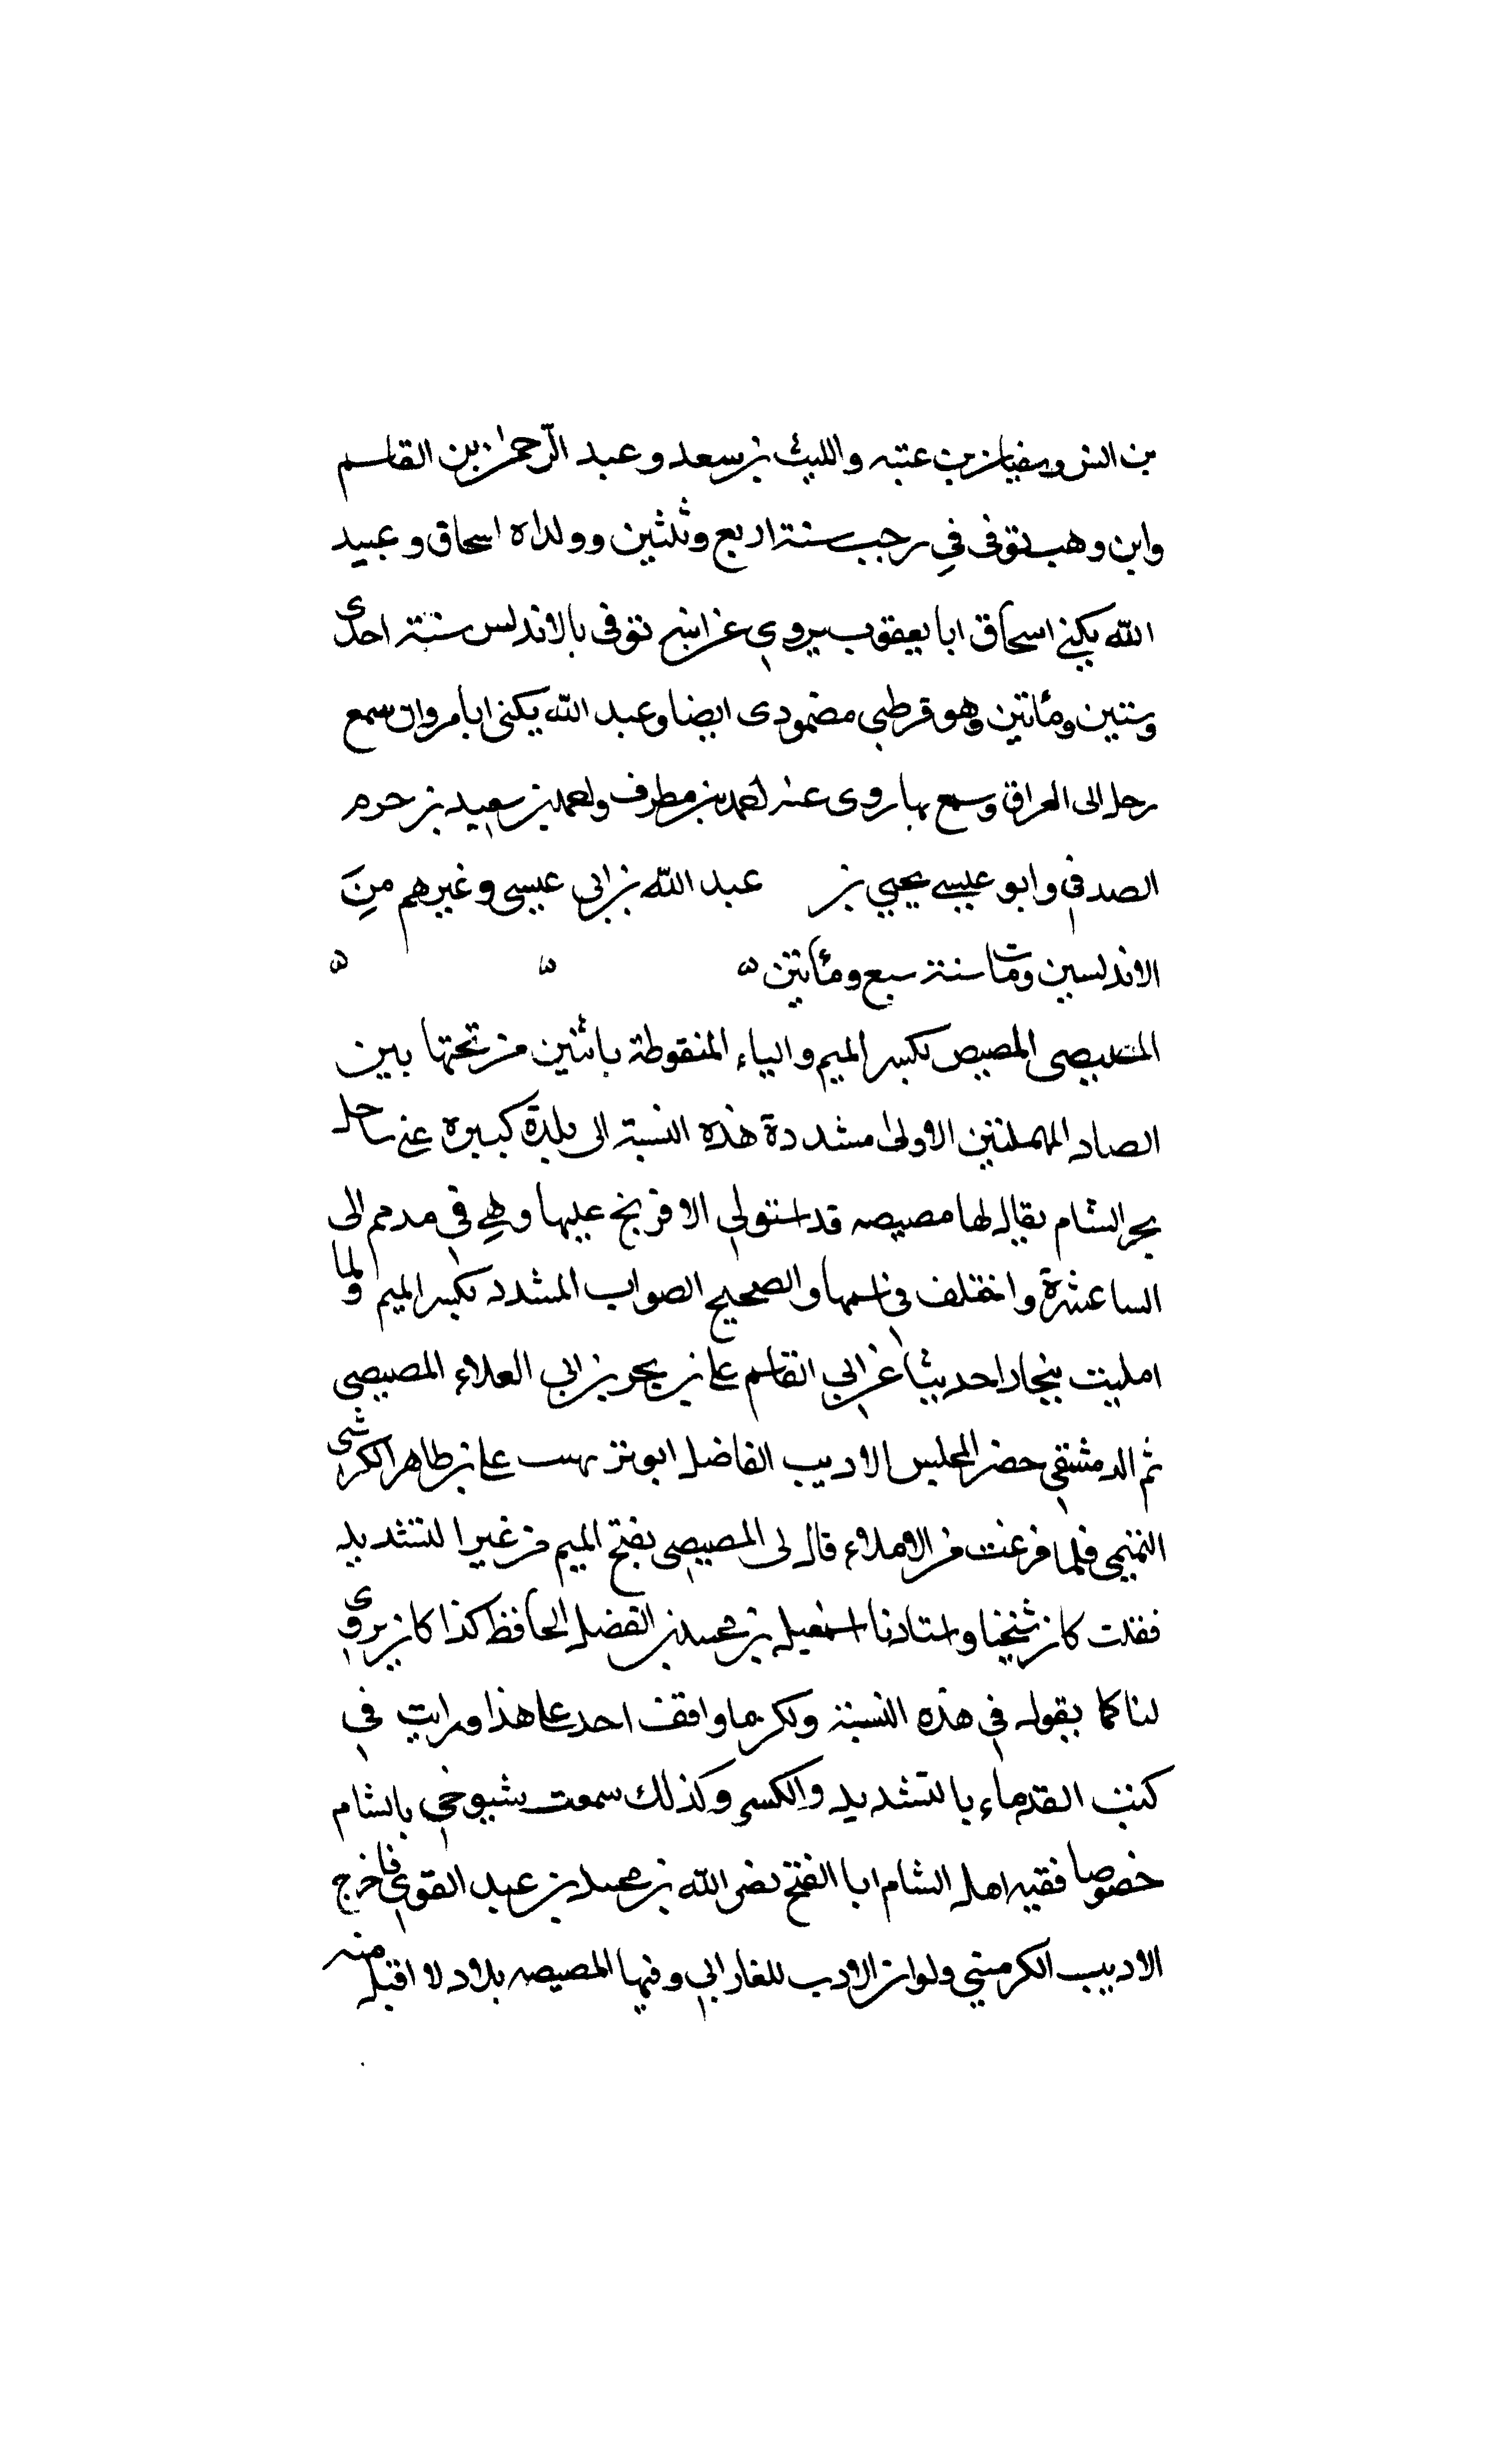 بن انس وسفيان بن عتبه والليث بن سعد وعبد الرحمن بن القاسم
وابن وهب توفى في رجب سنة اربع وثلثين وولداه اسحاق وعبيد
الله يكنى اسحاق ابا يعقوب يروي عن ابيه توفى بالاندلس سنة احدى
وستين ومأتين وهو قرطبي مضمودى ايضا وعبد الله يكنى ابا مروان سمع
رحل الى العراق وسمع بها روى عنه احمد بن مطرف واحمد بن سعيد بن حرم
الصدفي وابو عيسى يحيي بن عبد الله بن ابى عيسى وغيرهم من
الاندلسين ومات سنة سبع ومأتين ه ه ه
المصيصى المصيص بكسر الميم والياء المنقوطة باثنين من تحتها بين
الصاد المهملتين الاولى مشددة هذه النسبة الى بلدة كبيرة على ساحل
بحر الشام يقال لها مصيصه قد استولى الافرنج عليها وهي في مدمم الى
الساعشرة واختلف في اسمها والصحيح الصواب المشدد بكسر الميم ولما
امليت ببخارا حديثا عن ابي القاسم على بن بحر بن ابى العلاء المصيصى
ثم الدمشقي حضر المجلس الاديب الفاضل ابو على بن طاهر الكرشى
التميمى فلما فرغت من الاملاء قال لى المصيصى بفتح الميم من غير التشديد
فقلت كان شيخنا واستادنا اسمعيل بن محمد بن الفضل الحافظ كذا كان يروى
لنا كما يقوله في هذه النسبة ولكن ما وافقه احد على هذا ورايت في
كتب القدماء بالتشديد والكسر وكذلك سمعت شيوخي بالشام
خصوصا فقيه اهل الشام ابا الفتح نصر الله بن محمد بن عبد القوي فاخرج
الاديب الكرميني ديوان الادب للفارابى وفيها المصيصه بلاد لا اقبل منه